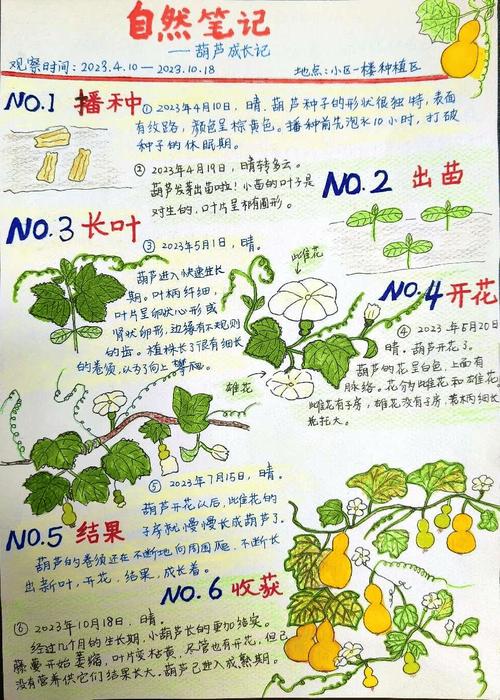 自然笔记
——葫芦成长记
观察时间：2023.4.10—2023.10.18
地点：小区一楼种植区
NO.1 播种
① 2023年4月10日，晴。葫芦种子的形状很独特，表面
有纹路，颜色呈棕黄色。播种前先泡水10小时，打破
种子的休眠期。
② 2023年4月19日，晴转多云。
葫芦发芽出苗啦！小苗的叶子是
对生的，叶片呈椭圆形。
NO.2 出苗
NO.3 长叶
③ 2023年5月1日，晴。
葫芦进入快速生长
期。叶柄纤细，
叶片呈卵状心形或
肾状卵形，边缘有不规则
的齿。植株长了很有细长
的卷须，以助向上攀爬。
雌花
雄花
NO.4 开花
④ 2023年5月20日，
晴。葫芦开花了。
葫芦的花呈白色，上面有
脉络。花分雌花和雄花
雌花有子房，雄花没有子房，花柄细长
⑤ 2023年7月15日，晴。
葫芦开花以后，雌花的
子房就慢慢长成葫芦了。
NO.5 结果
葫芦的卷须还在不断地向周围爬，不断长
出新叶，开花，结果，成长着。
NO.6 收获
⑥ 2023年10月18日，晴。
经过几个月的生长期，小葫芦长的更加结实。
藤蔓开始萎缩，叶片变枯黄，尽管也有开花，但已
没有营养供它们结果长大。葫芦已进入成熟期。